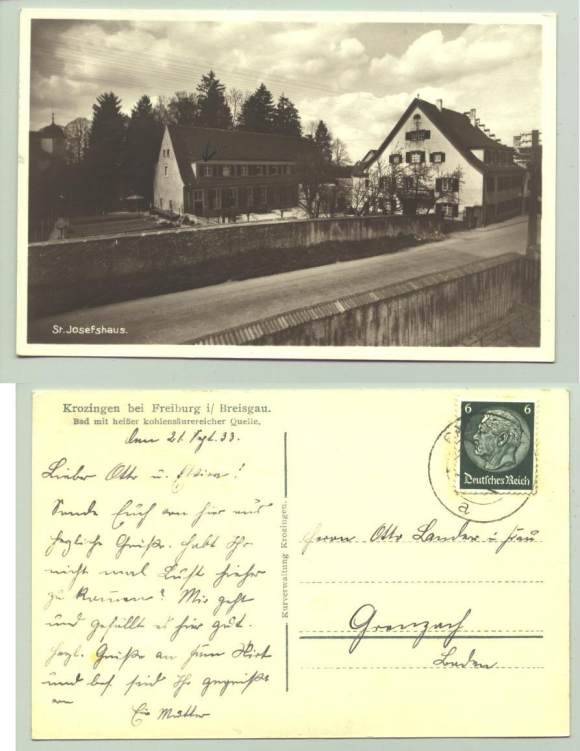 St. Josefshaus.
Krozingen bei Freiburg i/ Breisgau.
Bad mit heißer kohlensäurereicher Quelle.
den 21. Sept. 33.
Lieber Otto u.
Sende Euch von hier aus
herzliche Grüße. Habt Ihr
nicht mal Lust hieher
zu kommen? Mir geht
und gefällt es hier gut.
Herzl. Grüße an
und bes. seid Ihr gegrüßt
von
Mutter
Kurverwaltung Krozingen.
6 6
Deutsches Reich
a
Herrn Otto Lander u. Frau
Grenzach
Baden